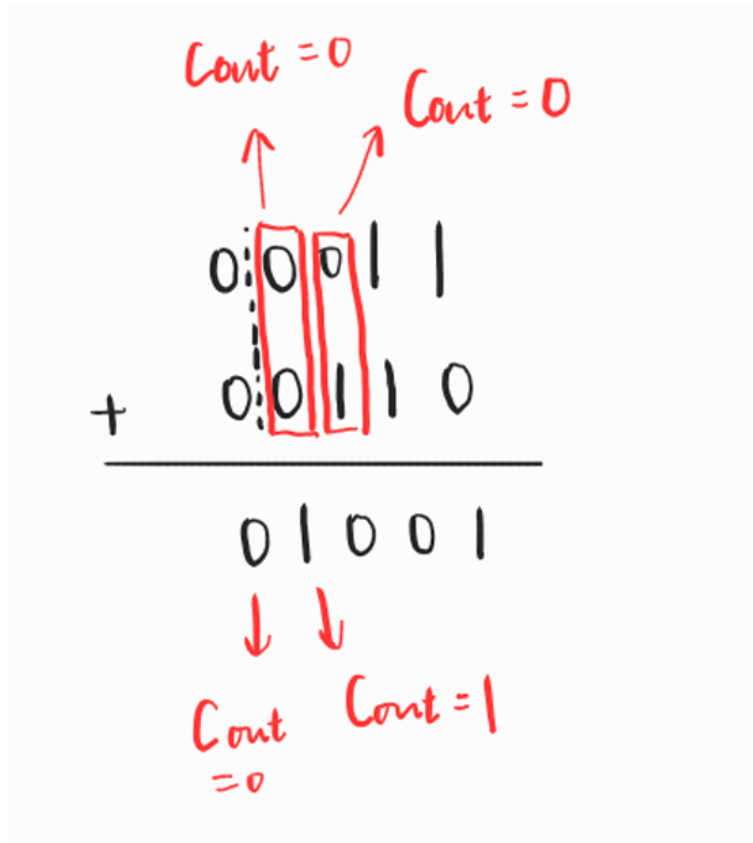 Cout = 0
Cout = 0
0 0 0 1 1
+ 0 0 1 1 0
0 1 0 0 1
Cout = 0
Cout = 1